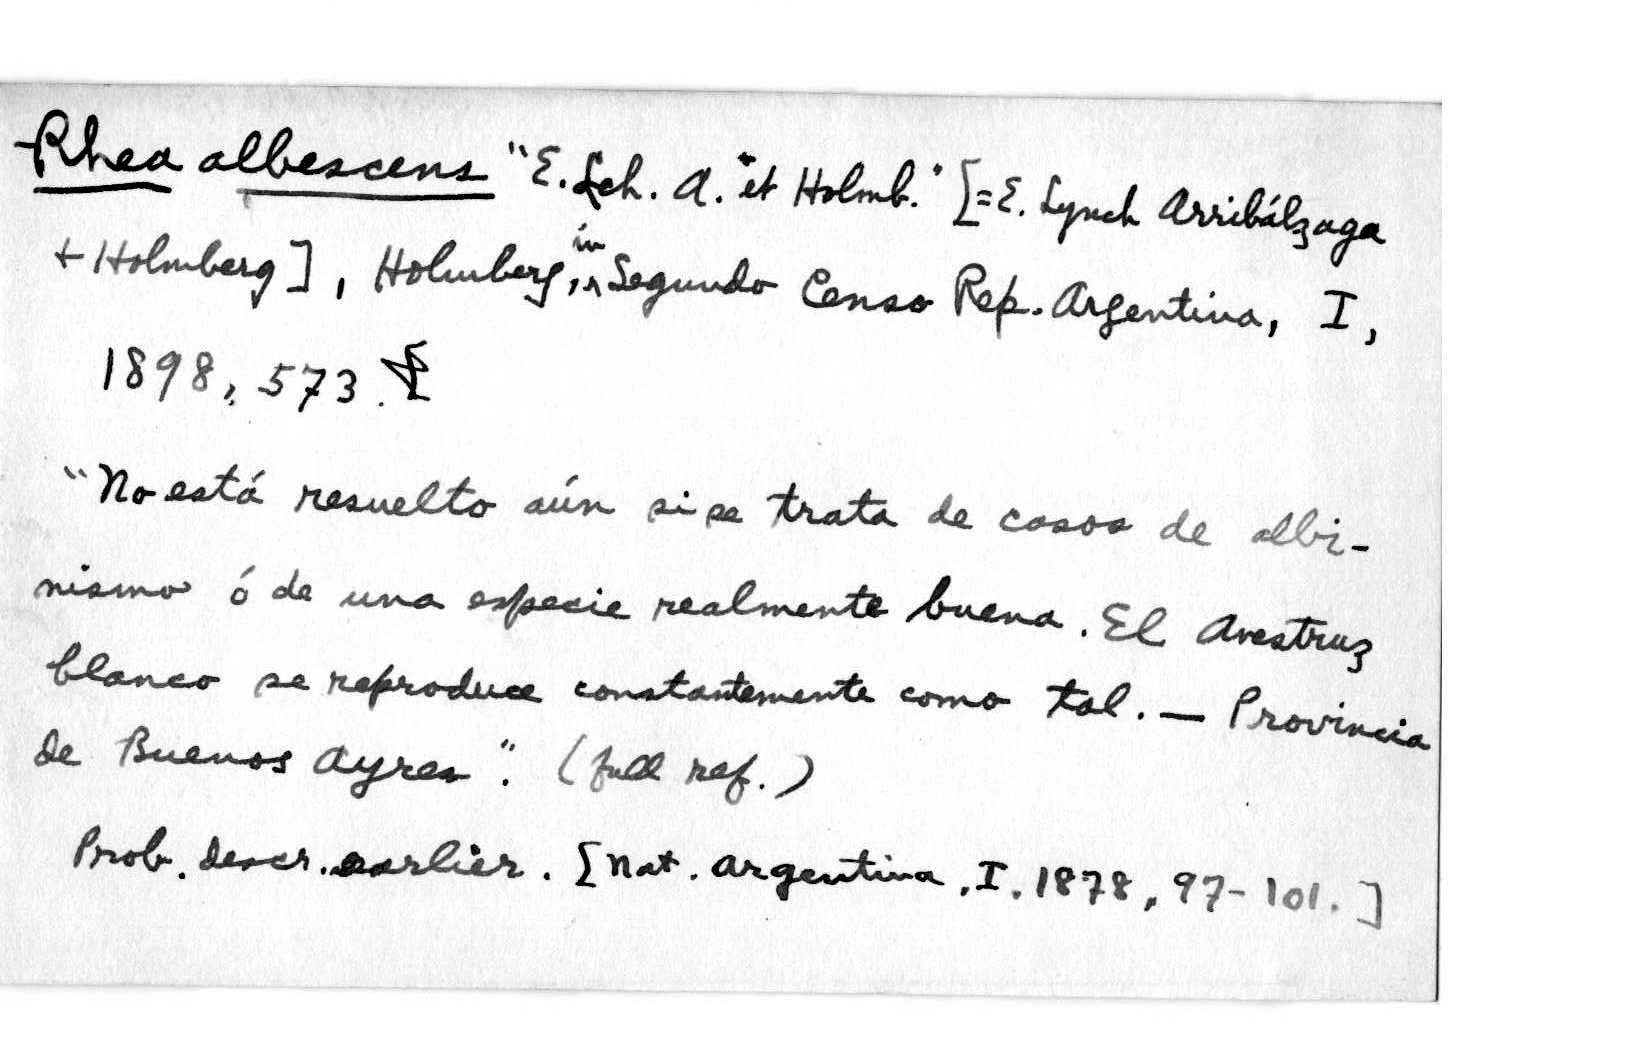 Rhea albescens "E. Lch. A. et Holmb." [=E. Lynch Arribálzaga
+ Holmberg], Holmberg, in Segundo Censo Rep. Argentina, I,
1898, 573.
"No está resuelto aún si se trata de casos de albi-
nismo ó de una especie realmente buena. El Avestruz
blanco se reproduce constantemente como tal. — Provincia
de Buenos Ayres". (full ref.)
Prob. descr. earlier. [Nat. Argentina, I, 1878, 97-101.]